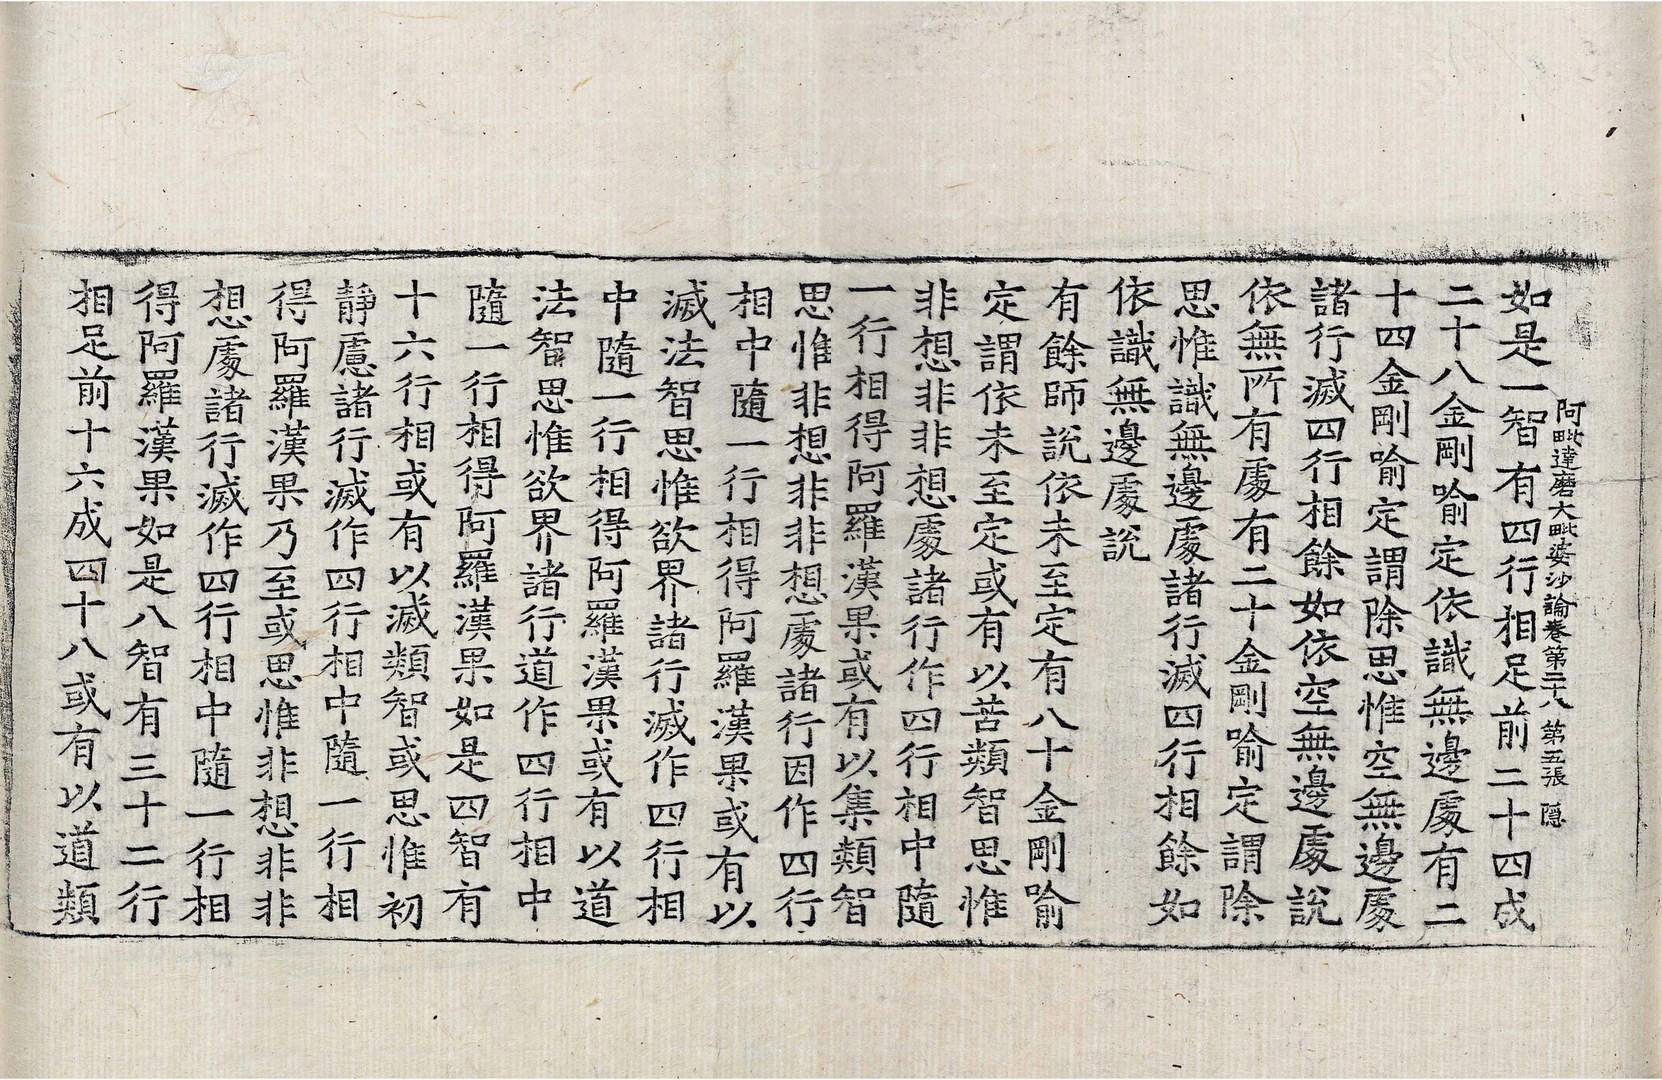 阿毗達磨大毗婆沙論卷第二十八 第五張 隱
如是一智有四行相足前二十四成
二十八金剛喻定依識無邊處有二
十四金剛喻定謂除思惟空無邊處
諸行滅四行相餘如依空無邊處說
依無所有處有二十金剛喻定謂除
思惟識無邊處諸行滅四行相餘如
依識無邊處說
有餘師說依未至定有八十金剛喻
定謂依未至定或有以苦類智思惟
非想非非想處諸行作四行相中隨
一行相得阿羅漢果或有以集類智
思惟非想非非想處諸行因作四行
相中隨一行相得阿羅漢果或有以
滅法智思惟欲界諸行滅作四行相
中隨一行相得阿羅漢果或有以道
法智思惟欲界諸行道作四行相中
隨一行相得阿羅漢果如是四智有
十六行相或有以滅類智或思惟初
靜慮諸行滅作四行相中隨一行相
得阿羅漢果乃至或思惟非想非非
想處諸行滅作四行相中隨一行相
得阿羅漢果如是八智有三十二行
相足前十六成四十八或有以道類